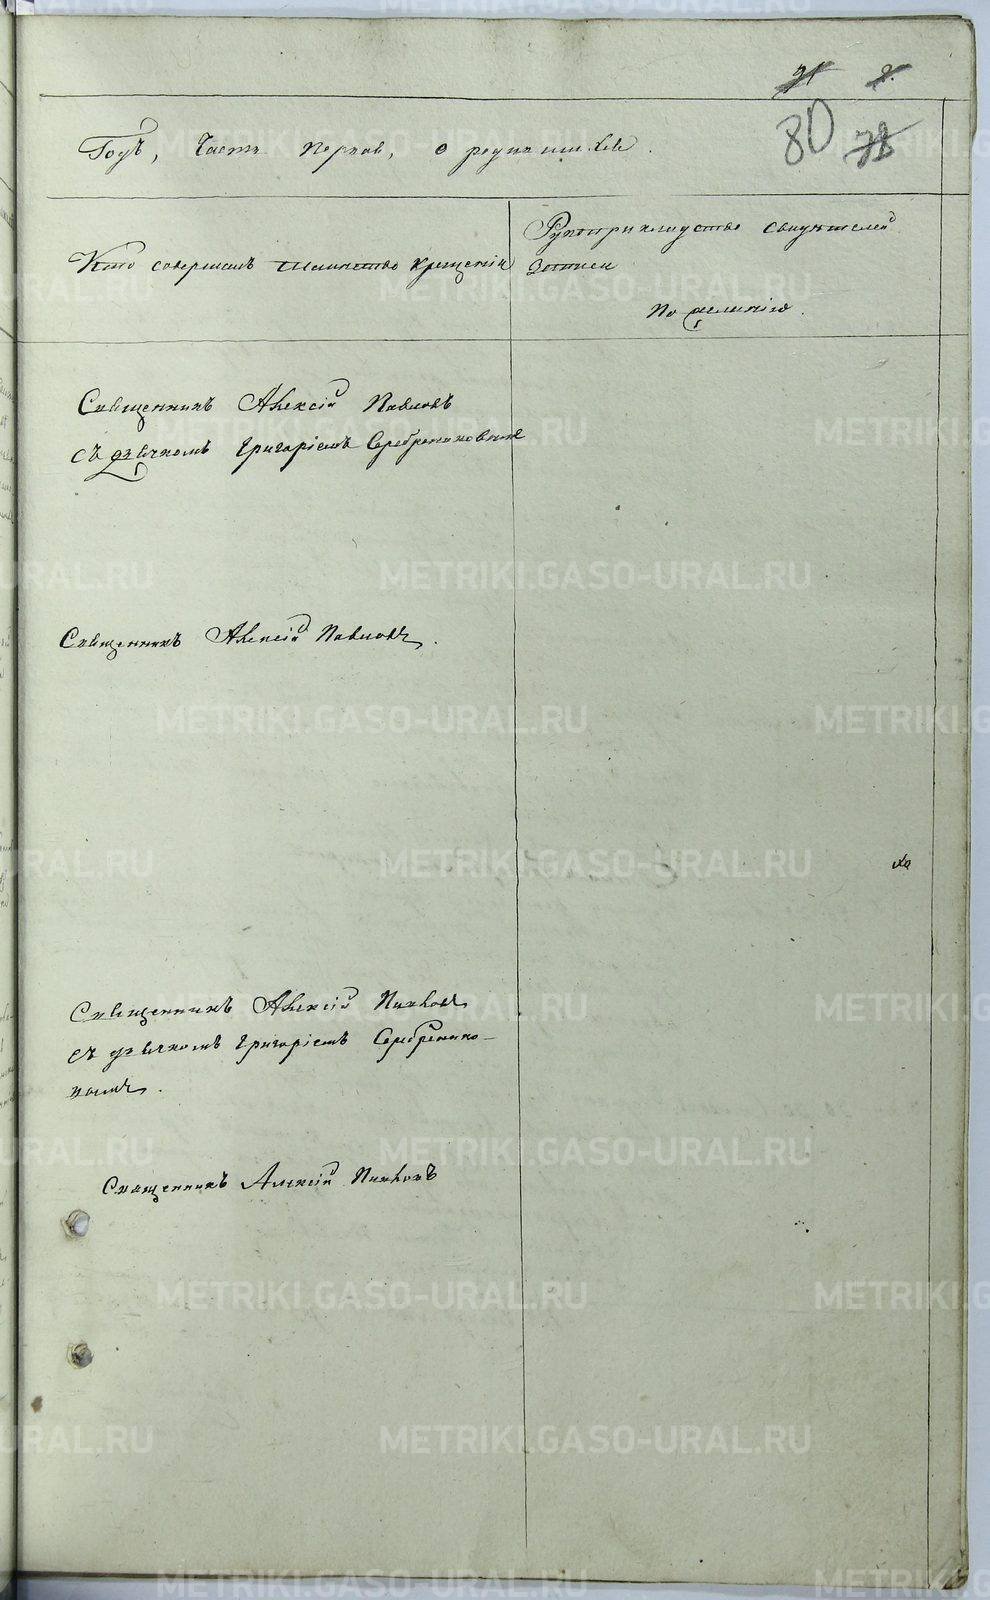 71 8.
80 78
Годъ, Часть Первая, о родившихся.
Кто совершалъ таинство крещенія
Рукоприкладство свидѣтелей
записи
по желанію.
Священникъ Алексій Павловъ
съ дьячкомъ Григоріемъ Серебренниковымъ
Священникъ Алексій Павловъ.
Священникъ Алексій Павловъ
съ дьячкомъ Григоріемъ Серебренико-
вымъ.
Священникъ Алексій Павловъ
METRIKI.GASO-URAL.RU